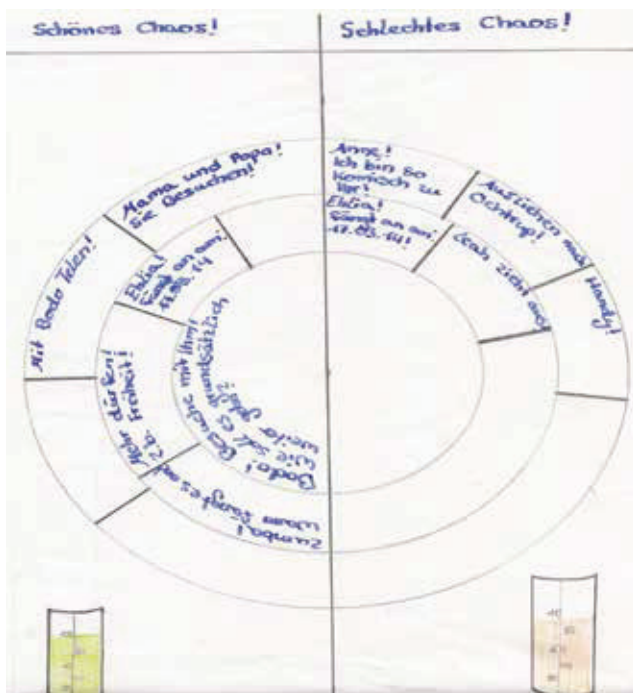 Schönes Chaos!
Schlechtes Chaos!
Mit Bodo Telen!
Mama und Papa!
Sie Besuchen!
Eklia!
fängt an am:
17.03.14
Mehr dürfen!
z.b. Freiheit!
Bodo! Besuche mit ihm!
Wie soll es grundsätzlich
weiter gehn?
Zumba!
Wann fängt es an?
Anne!
Ich bin so
Komisch zu
Ihr!
Eklia!
fängt an am:
17.03.14!
Ausziehen nach
Ochtrup!
Leah zieht aus!
Handy!